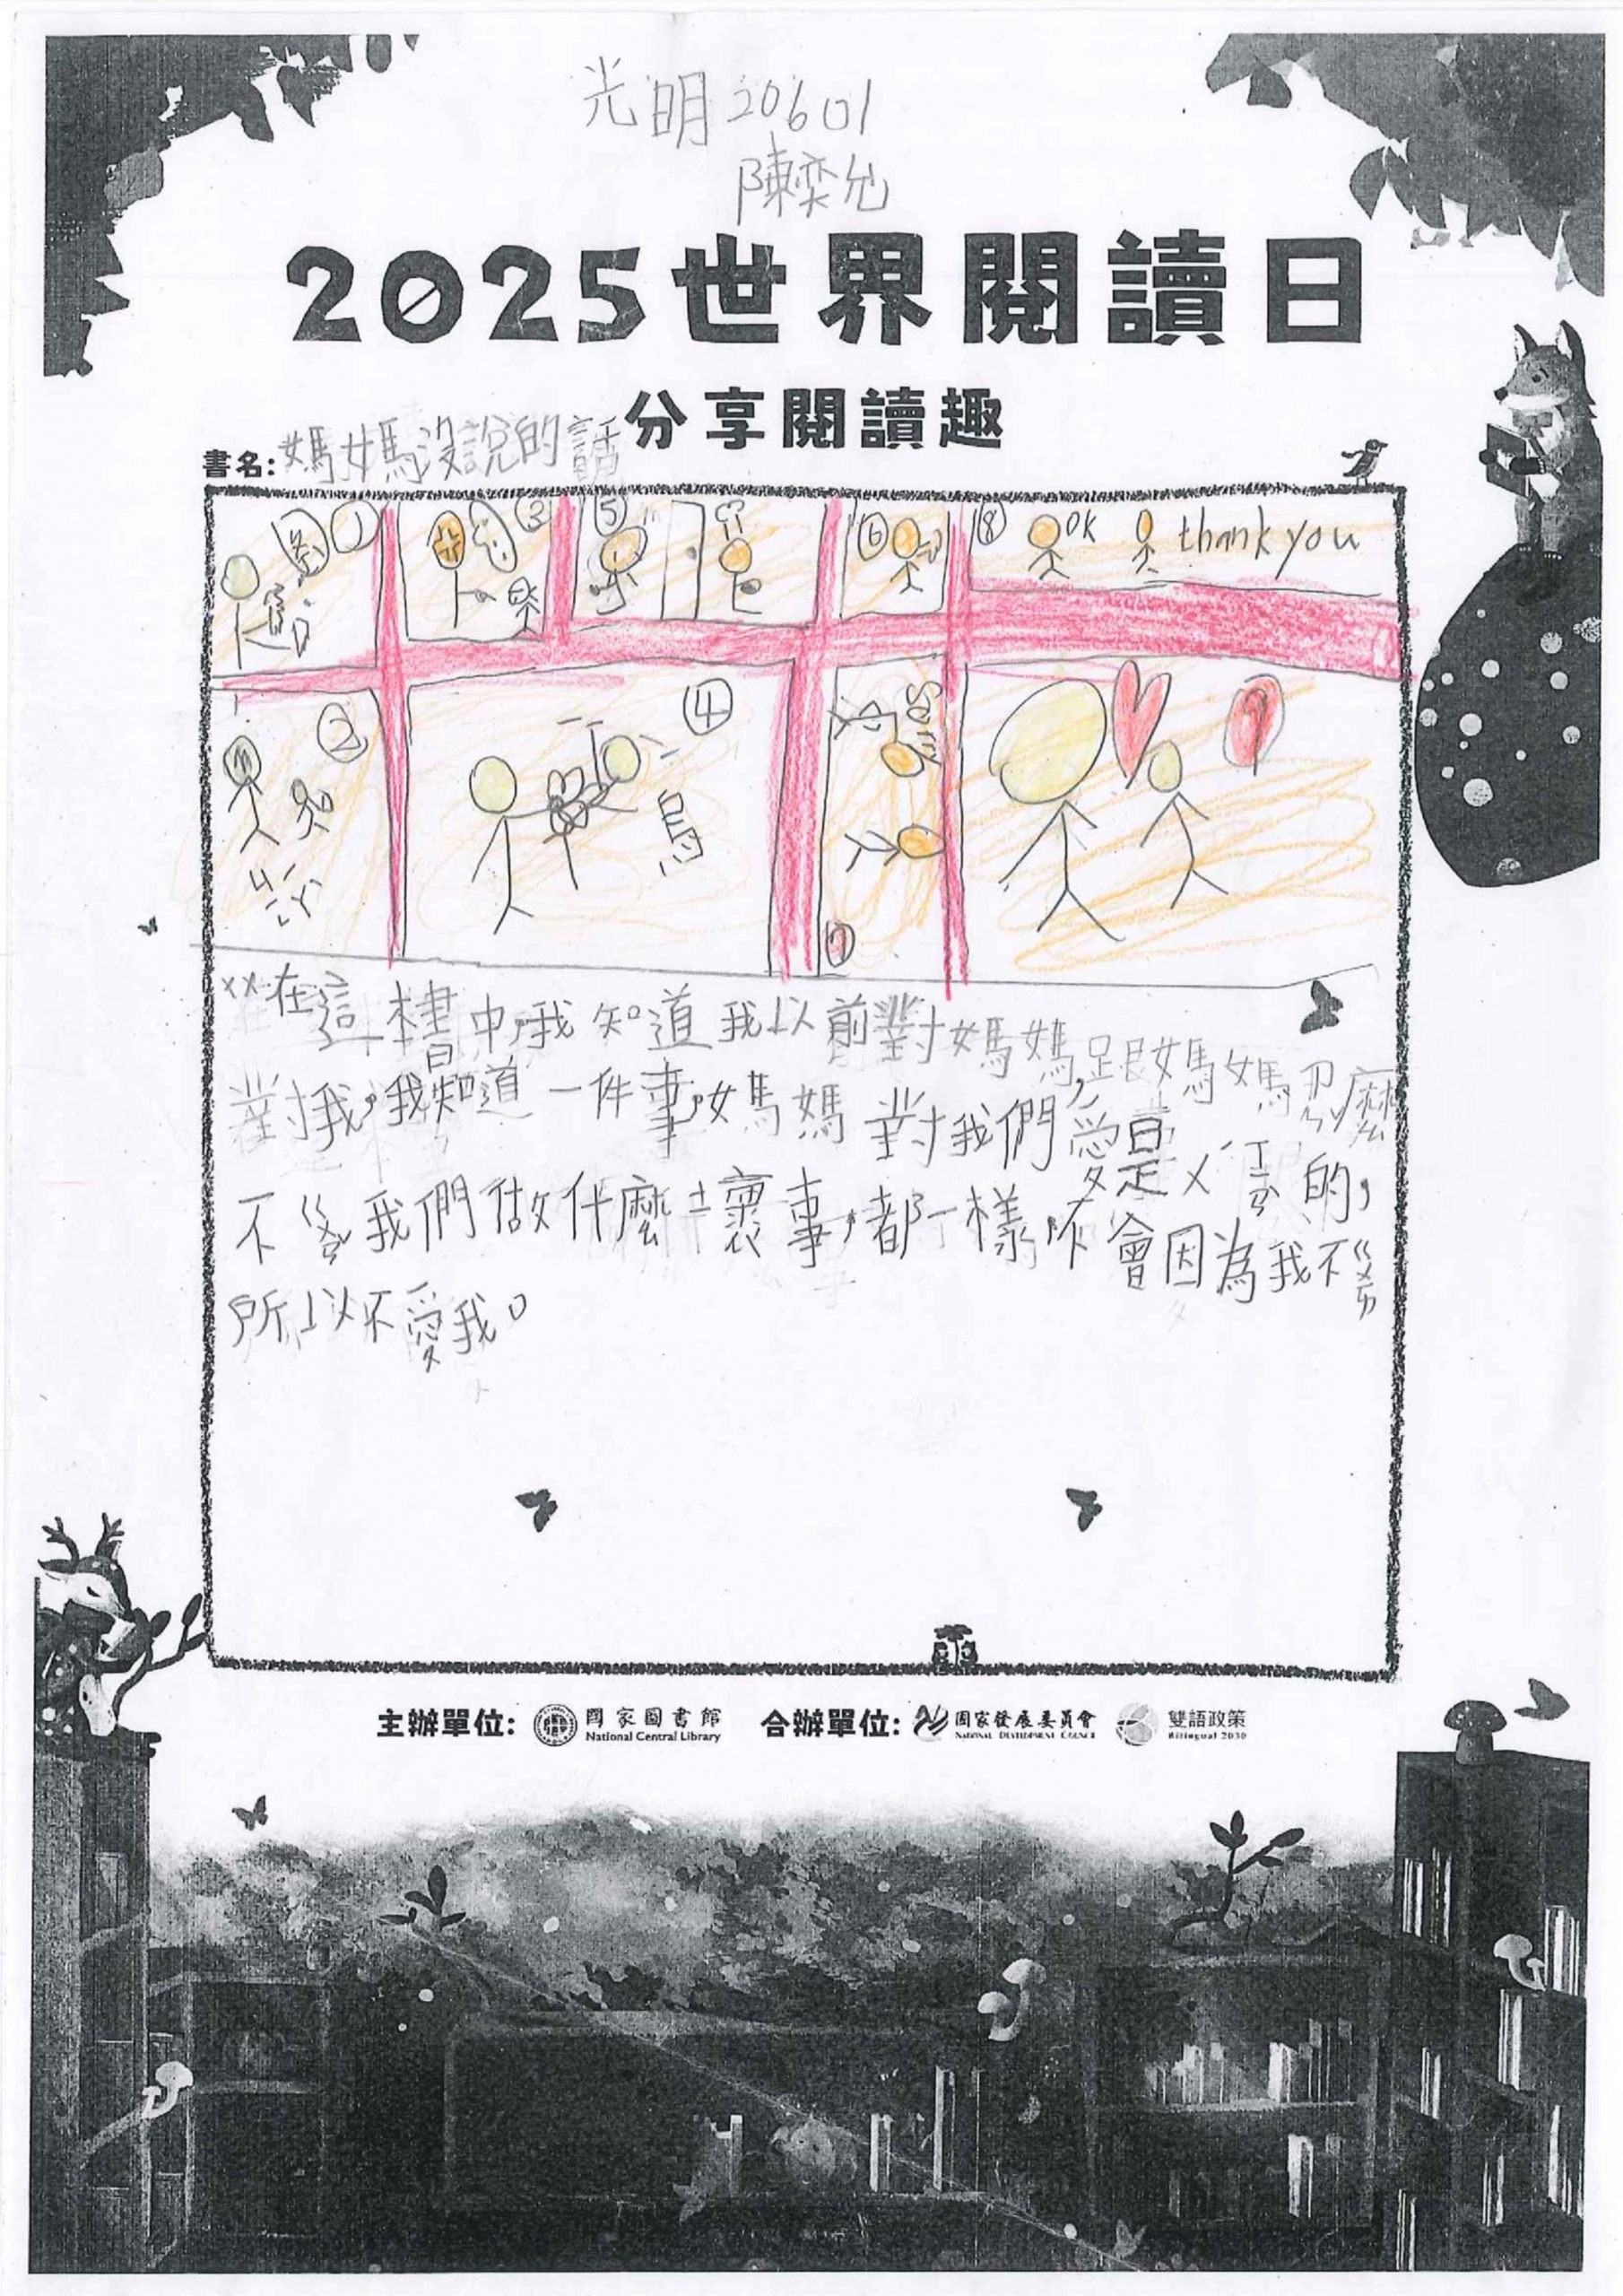 光明 20601
陳奕允
2025世界閱讀日
分享閱讀趣
書名:媽媽沒說的話
① ③ ⑤ ⑥ ⑧ OK thank you
② ④ Sorry ⑦ ⑨
在這本書中,我知道我以前對媽媽,跟媽媽ㄗㄣˇ麼
對我,我知道一件事,媽媽對我們愛是ㄨˊ ㄒㄧㄥˊ的,
不ㄍㄨㄢˇ我們做什麼壞事,都一樣,不會因為我不ㄍㄨㄞ
所以不愛我。
主辦單位: 國家圖書館 National Central Library 合辦單位: 國家發展委員會 NATIONAL DEVELOPMENT COUNCIL 雙語政策 Bilingual 2030